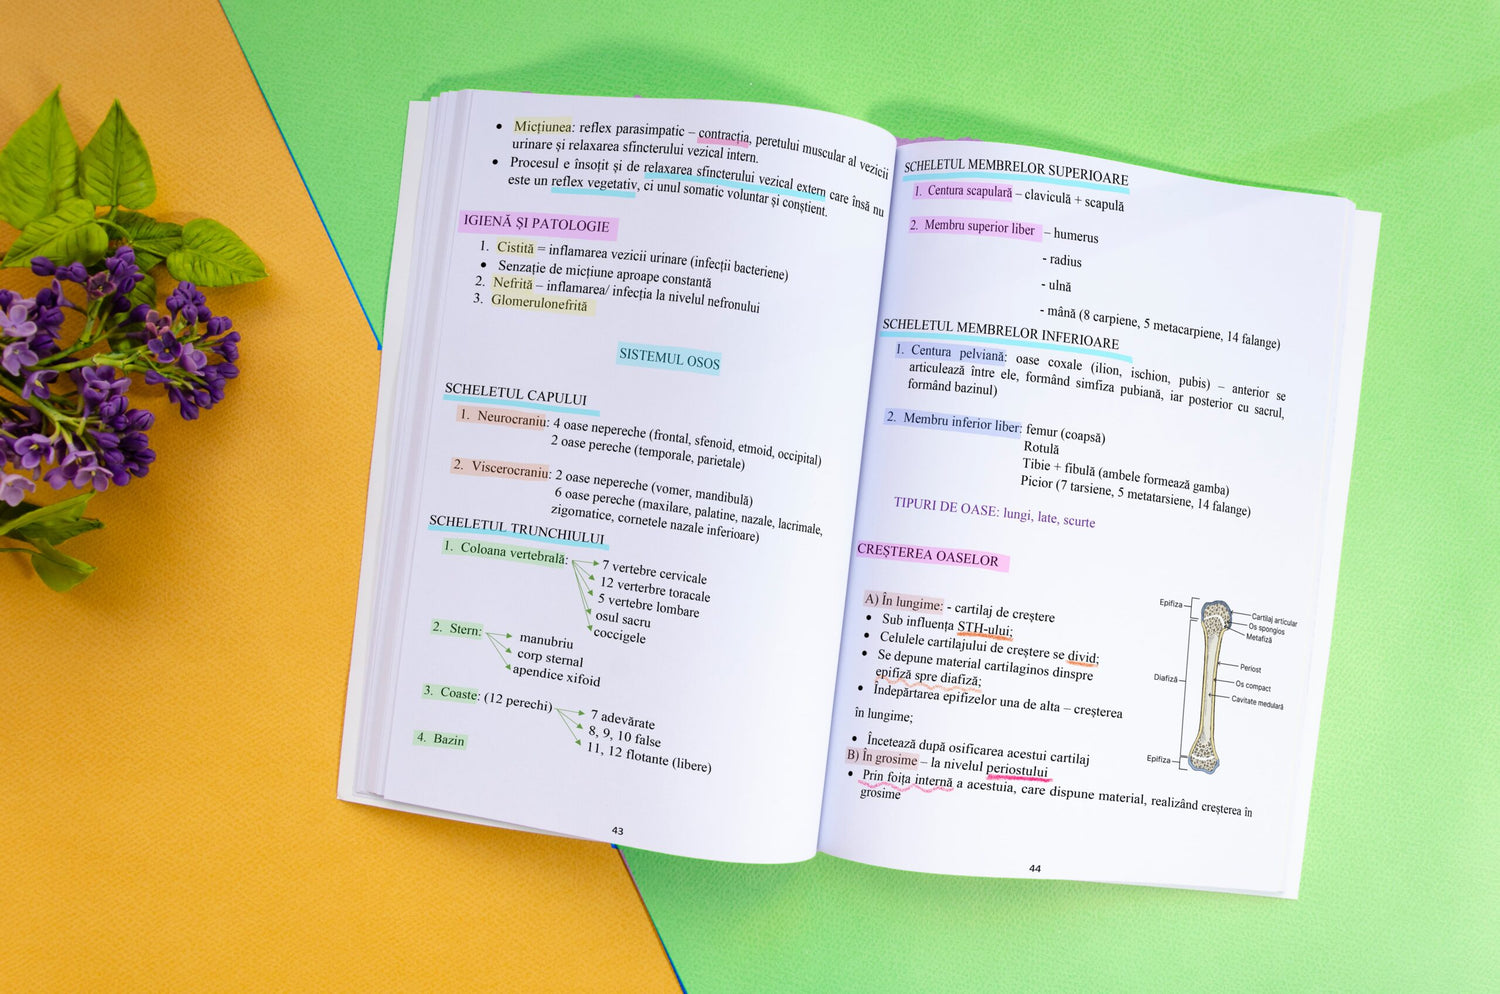 • Micțiunea: reflex parasimpatic – contracția, peretului muscular al vezicii
urinare și relaxarea sfincterului vezical intern.
• Procesul e însoțit și de relaxarea sfincterului vezical extern care însă nu
este un reflex vegetativ, ci unul somatic voluntar și conștient.
IGIENĂ ȘI PATOLOGIE
1. Cistită = inflamarea vezicii urinare (infecții bacteriene)
• Senzație de micțiune aproape constantă
2. Nefrită – inflamarea/ infecția la nivelul nefronului
3. Glomerulonefrită
SISTEMUL OSOS
SCHELETUL CAPULUI
1. Neurocraniu: 4 oase nepereche (frontal, sfenoid, etmoid, occipital)
2 oase pereche (temporale, parietale)
2. Viscerocraniu: 2 oase nepereche (vomer, mandibulă)
6 oase pereche (maxilare, palatine, nazale, lacrimale,
zigomatice, cornetele nazale inferioare)
SCHELETUL TRUNCHIULUI
1. Coloana vertebrală:
7 vertebre cervicale
12 verterbre toracale
5 vertebre lombare
osul sacru
coccigele
2. Stern:
manubriu
corp sternal
apendice xifoid
3. Coaste: (12 perechi)
7 adevărate
8, 9, 10 false
11, 12 flotante (libere)
4. Bazin
43
SCHELETUL MEMBRELOR SUPERIOARE
1. Centura scapulară – claviculă + scapulă
2. Membru superior liber – humerus
- radius
- ulnă
- mână (8 carpiene, 5 metacarpiene, 14 falange)
SCHELETUL MEMBRELOR INFERIOARE
1. Centura pelviană: oase coxale (ilion, ischion, pubis) – anterior se
articulează între ele, formând simfiza pubiană, iar posterior cu sacrul,
formând bazinul)
2. Membru inferior liber: femur (coapsă)
Rotulă
Tibie + fibulă (ambele formează gamba)
Picior (7 tarsiene, 5 metatarsiene, 14 falange)
TIPURI DE OASE: lungi, late, scurte
CREȘTEREA OASELOR
A) În lungime: - cartilaj de creștere
• Sub influența STH-ului;
• Celulele cartilajului de creștere se divid;
• Se depune material cartilaginos dinspre
epifiză spre diafiză;
• Îndepărtarea epifizelor una de alta – creșterea
în lungime;
• Încetează după osificarea acestui cartilaj
B) În grosime – la nivelul periostului
• Prin foița internă a acestuia, care dispune material, realizând creșterea în
grosime
Epifiza
Cartilaj articular
Os spongios
Metafiză
Periost
Diafiză
Os compact
Cavitate medulară
Epifiza
44